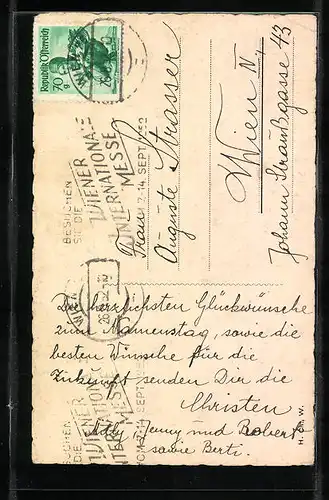 Republik Österreich
70
g
WIEN
BESUCHEN
SIE DIE
WIENER
INTERNATIONALE
MESSE
7.-14. SEPT. 1952
Frau
Auguste Strasser
Wien IV,
Johann Straußgasse 43
WIEN
BESUCHEN
SIE DIE
WIENER
INTERNATIONALE
MESSE
Die herzlichsten Glückwünsche
zum Namenstag, sowie die
besten Wünsche für die
Zukunft senden Dir die
Christen
Adly, Jenny und Robert
sowie Berti.
H. Ch. W.